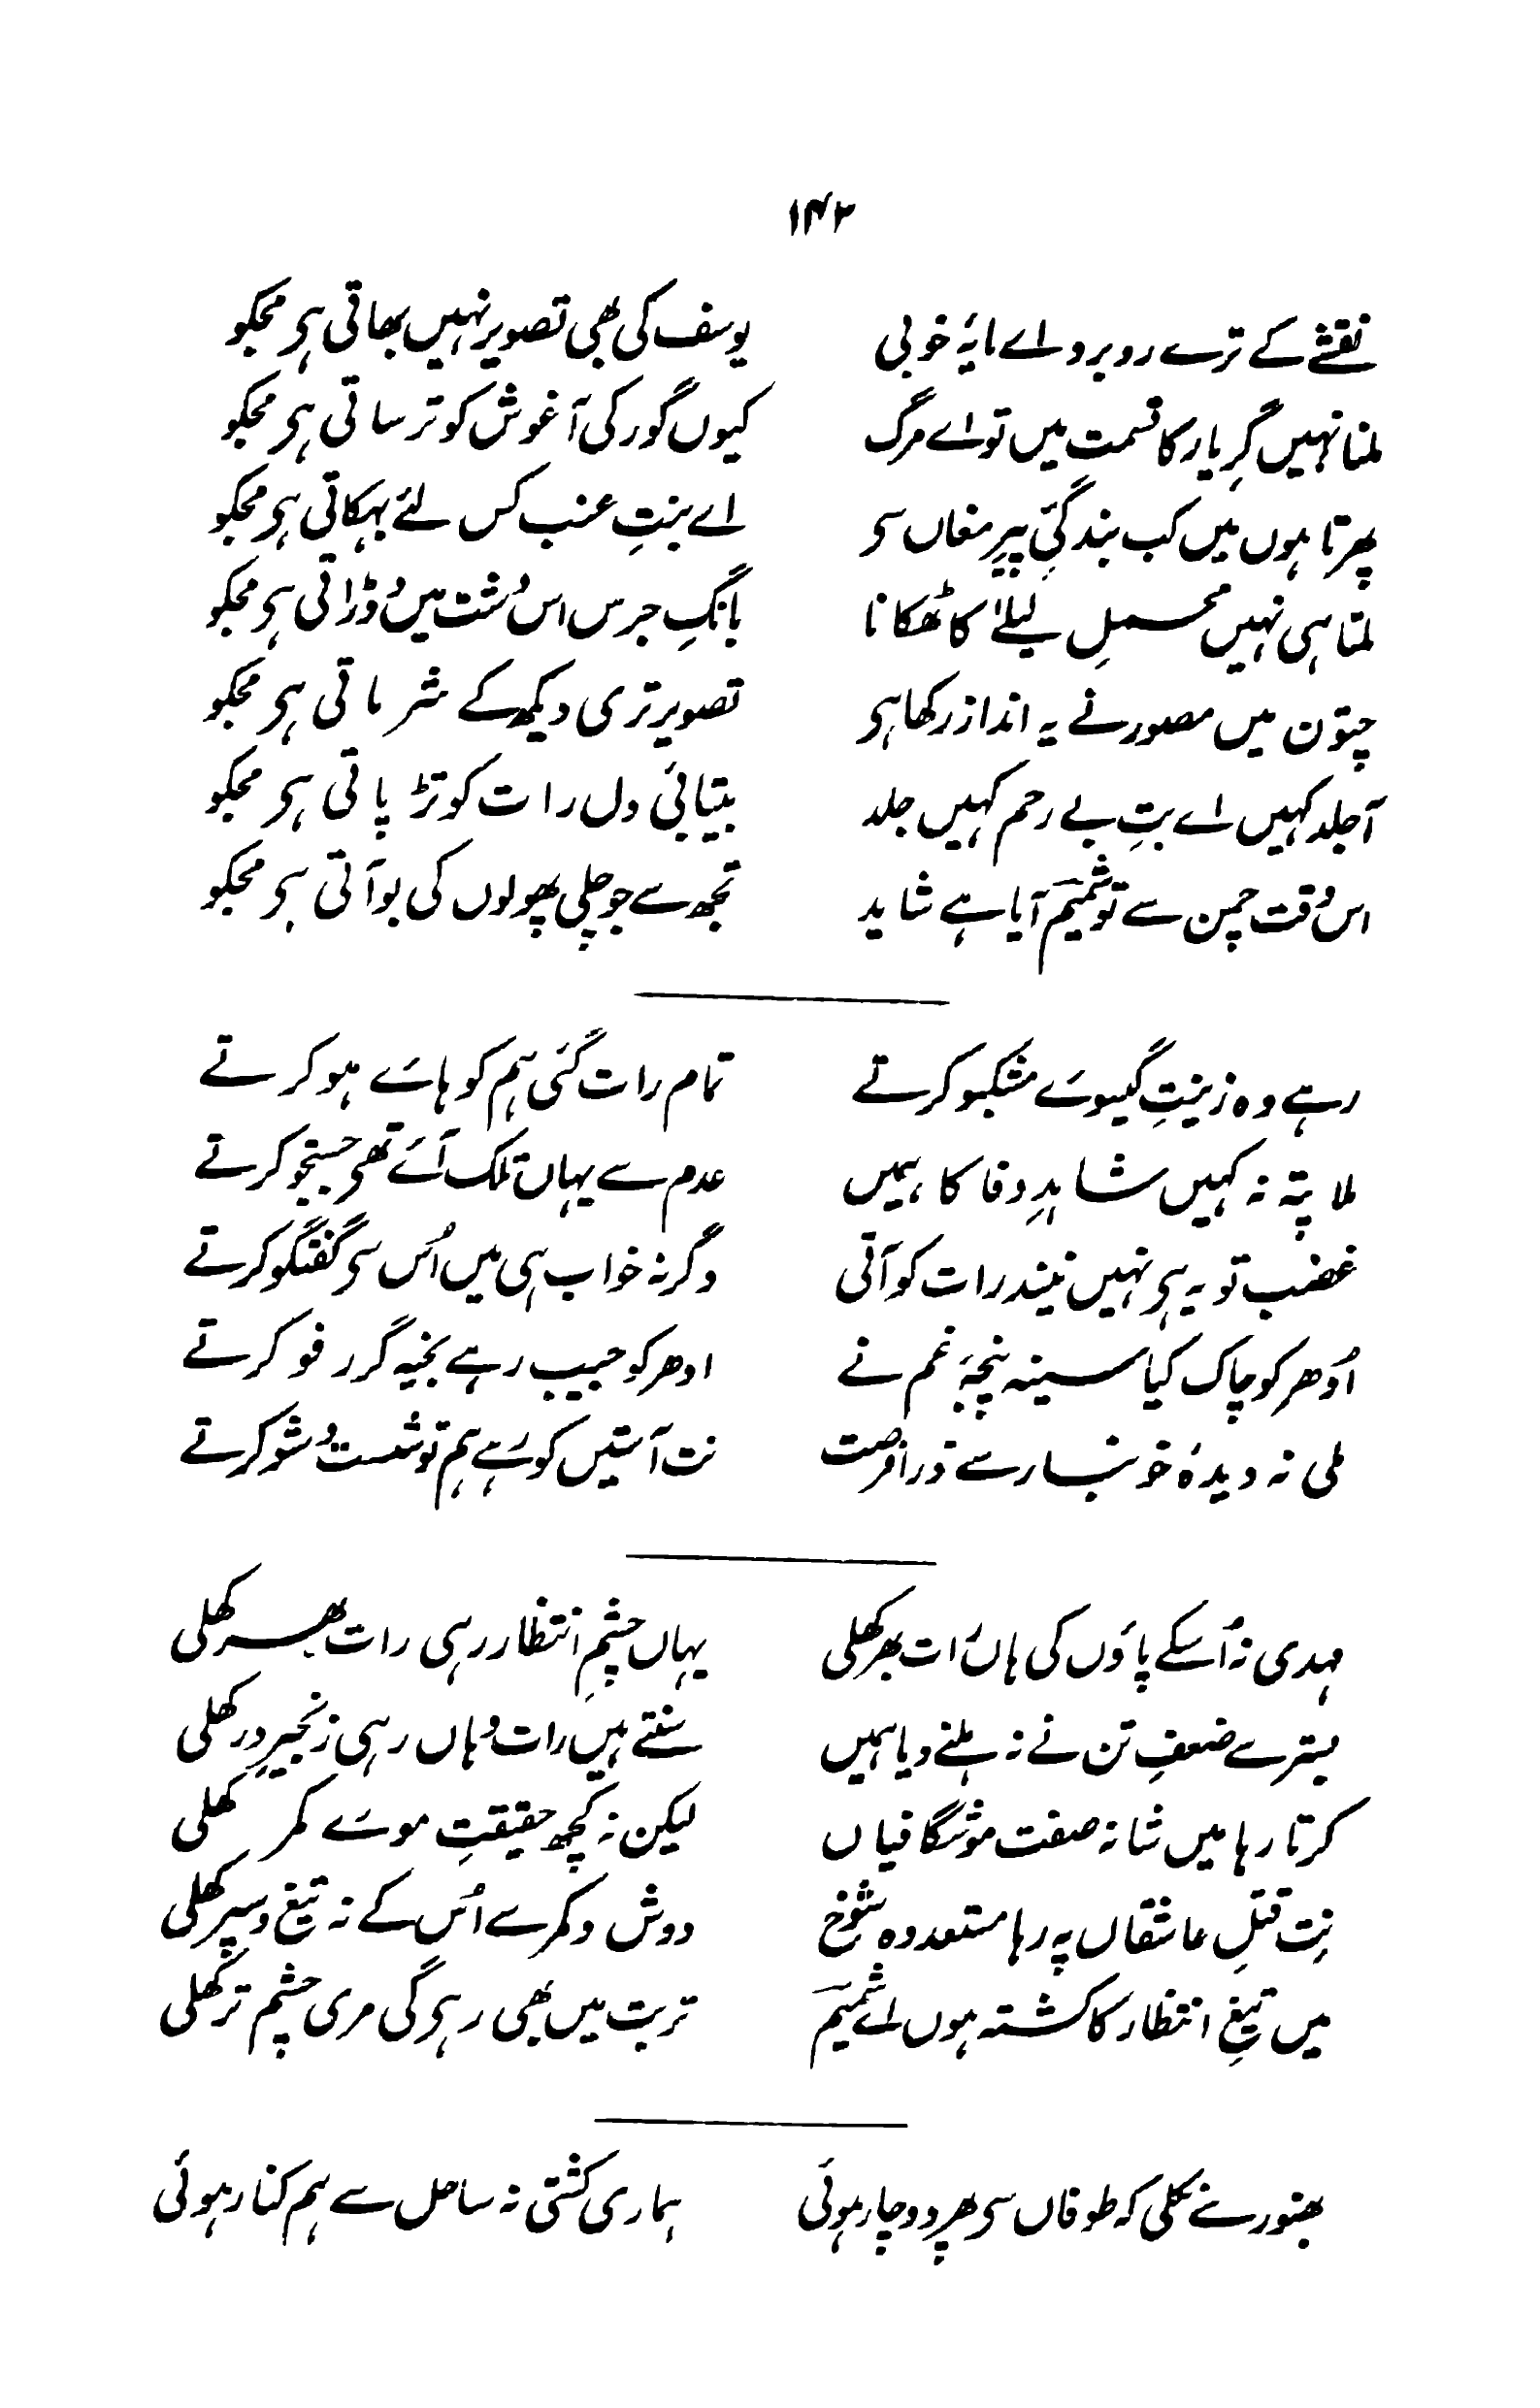 ۱۴۲
نقشے کے ترے روبرو اے مایۂ خوبی یوسف کی بھی تصویر نہیں بھاتی ہی مجکو
ملنا نہیں گر یار کا قسمت میں تو اے مرگ کیوں گور کی آغوش کو ترساتی ہی مجکو
پھرتا ہوں میں کب بندگیِ پیرِ مغاں سی اے بنتِ عنب کس لئے بہکاتی ہی مجکو
ملتا ہی نہیں محملِ لیلےٰ کا ٹھکانا بانگِ جرس اس دشت میں دوڑاتی ہی مجکو
چتون میں مصور نے یہ انداز رکھا ہی تصویر تری دیکھ کے شرماتی ہی مجکو
آ جلد کہیں اے بتِ بے رحم کہیں جلد بیتابیِ دل رات کو تڑپاتی ہی مجکو
اس وقت چمن سے تو شمیم آیا ہے شاید تجھ سے جو چلی پھولوں کی بو آتی ہی مجکو
رہے وہ زینتِ گیسوئے مشکبو کرتے تمام رات گئی ہم کو ہائے ہو کرتے
ملا پتہ نہ کہیں شاہدِ وفا کا ہمیں عدم سے یہاں تلک آئے تھی جستجو کرتے
غضب تو یہ ہی نہیں نیند رات کو آتی وگرنہ خواب ہی میں اُس سی گفتگو کرتے
اُدھر کو چاک کیا سینہ پنجۂ غم نے ادھر کو حبیب رہے بخیہ گر رفو کرتے
ملی نہ دیدۂ خونبار سے ذرا فرصت نت آستیں کو رہے ہم تو شست و شو کرتے
مہدی نہ اُسکے پاؤں کی ہاں رات بھر کھلی یہاں چشمِ انتظار رہی رات بھر کھلی
بستر سے ضعفِ تن نے نہ ہلنے دیا ہمیں سنتے ہیں رات وہاں رہی زنجیرِ در کھلی
کرتا رہا میں شانہ صفت موشگافیاں لیکن نہ کچھ حقیقتِ موئے کمر کھلی
نِت قتلِ عاشقاں پہ رہا مستعد وہ شوخ دوش و کمر سے اُس کے نہ تیغ و سپر کھلی
میں تیغِ انتظار کا کشتہ ہوں اے شمیم تربت میں بھی رہی گی مری چشمِ تر کھلی
بھنور سے نکلی کہ طوفاں سی پھر دوچار ہوئی ہماری کشتی نہ ساحل سے ہم کنار ہوئی